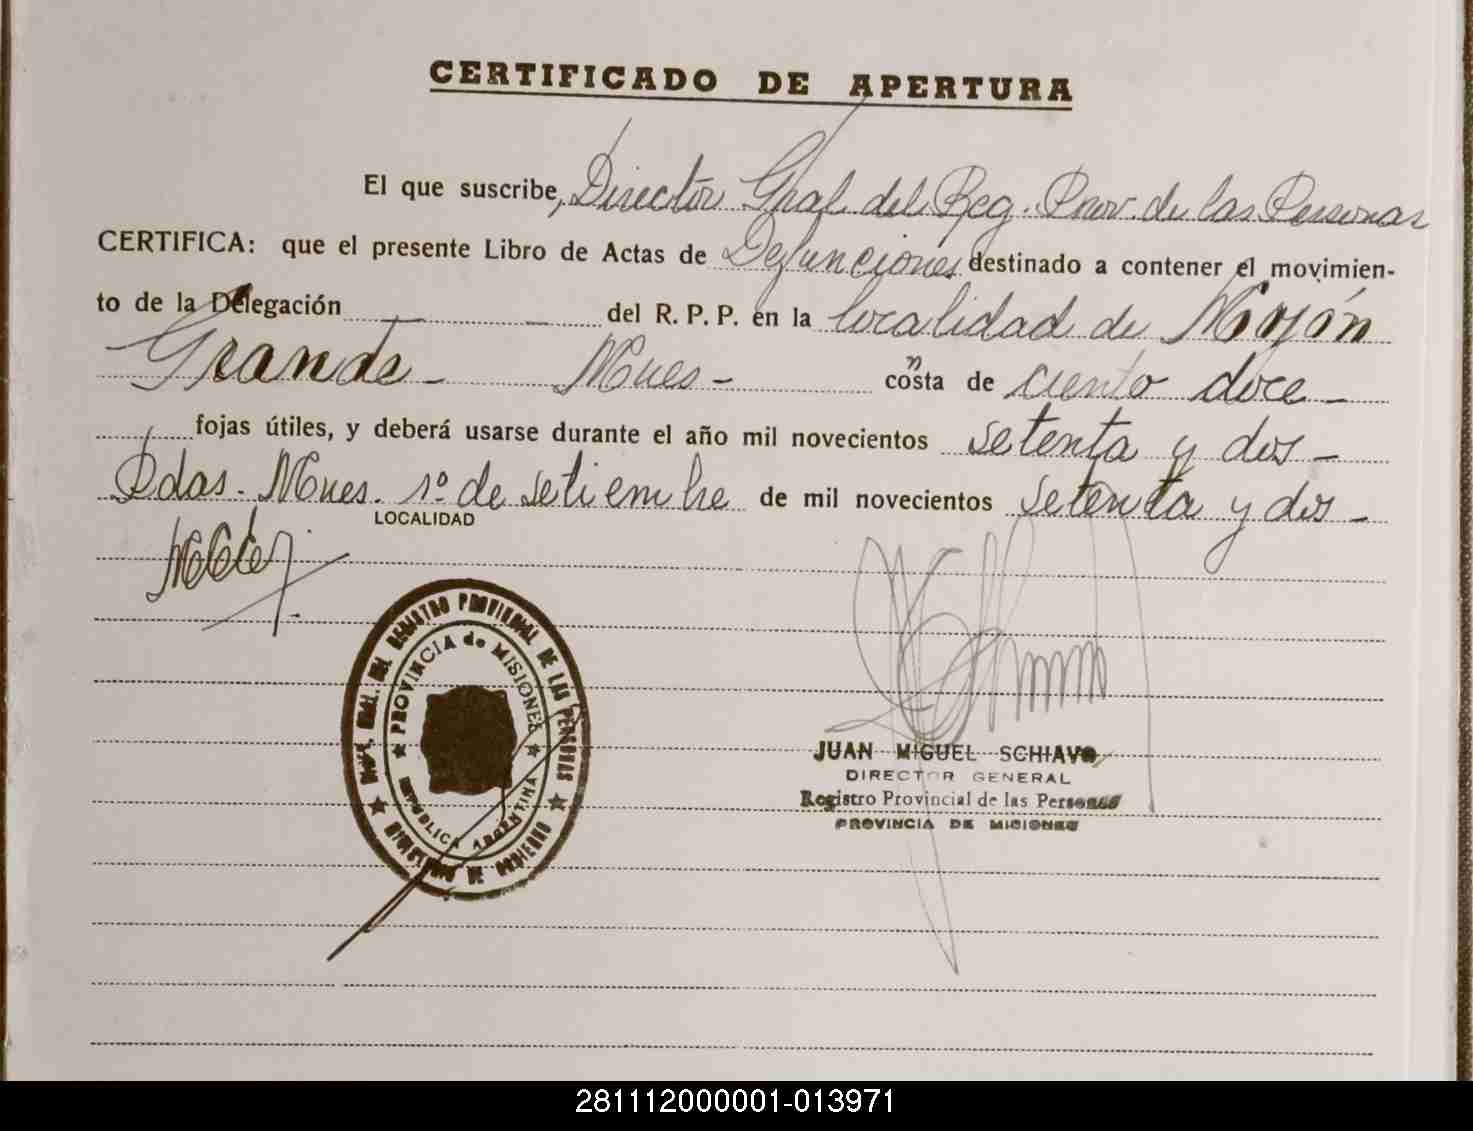 CERTIFICADO DE APERTURA
El que suscribe, Director Gral del Reg. Prov. de las Personas
CERTIFICA: que el presente Libro de Actas de Defunciones destinado a contener el movimien-
to de la Delegación — — del R. P. P. en la localidad de Mojón
Grande - Mnes - consta de ciento doce -
fojas útiles, y deberá usarse durante el año mil novecientos setenta y dos -
Pdas. Mnes. 1º de setiembre de mil novecientos setenta y dos -
LOCALIDAD
DIREC. GRAL. DEL REGISTRO PROVINCIAL DE LAS PERSONAS
PROVINCIA de MISIONES
REPUBLICA ARGENTINA
MINISTERIO DE GOBIERNO
JUAN MIGUEL SCHIAVO
DIRECTOR GENERAL
Registro Provincial de las Personas
PROVINCIA DE MISIONES
281112000001-013971